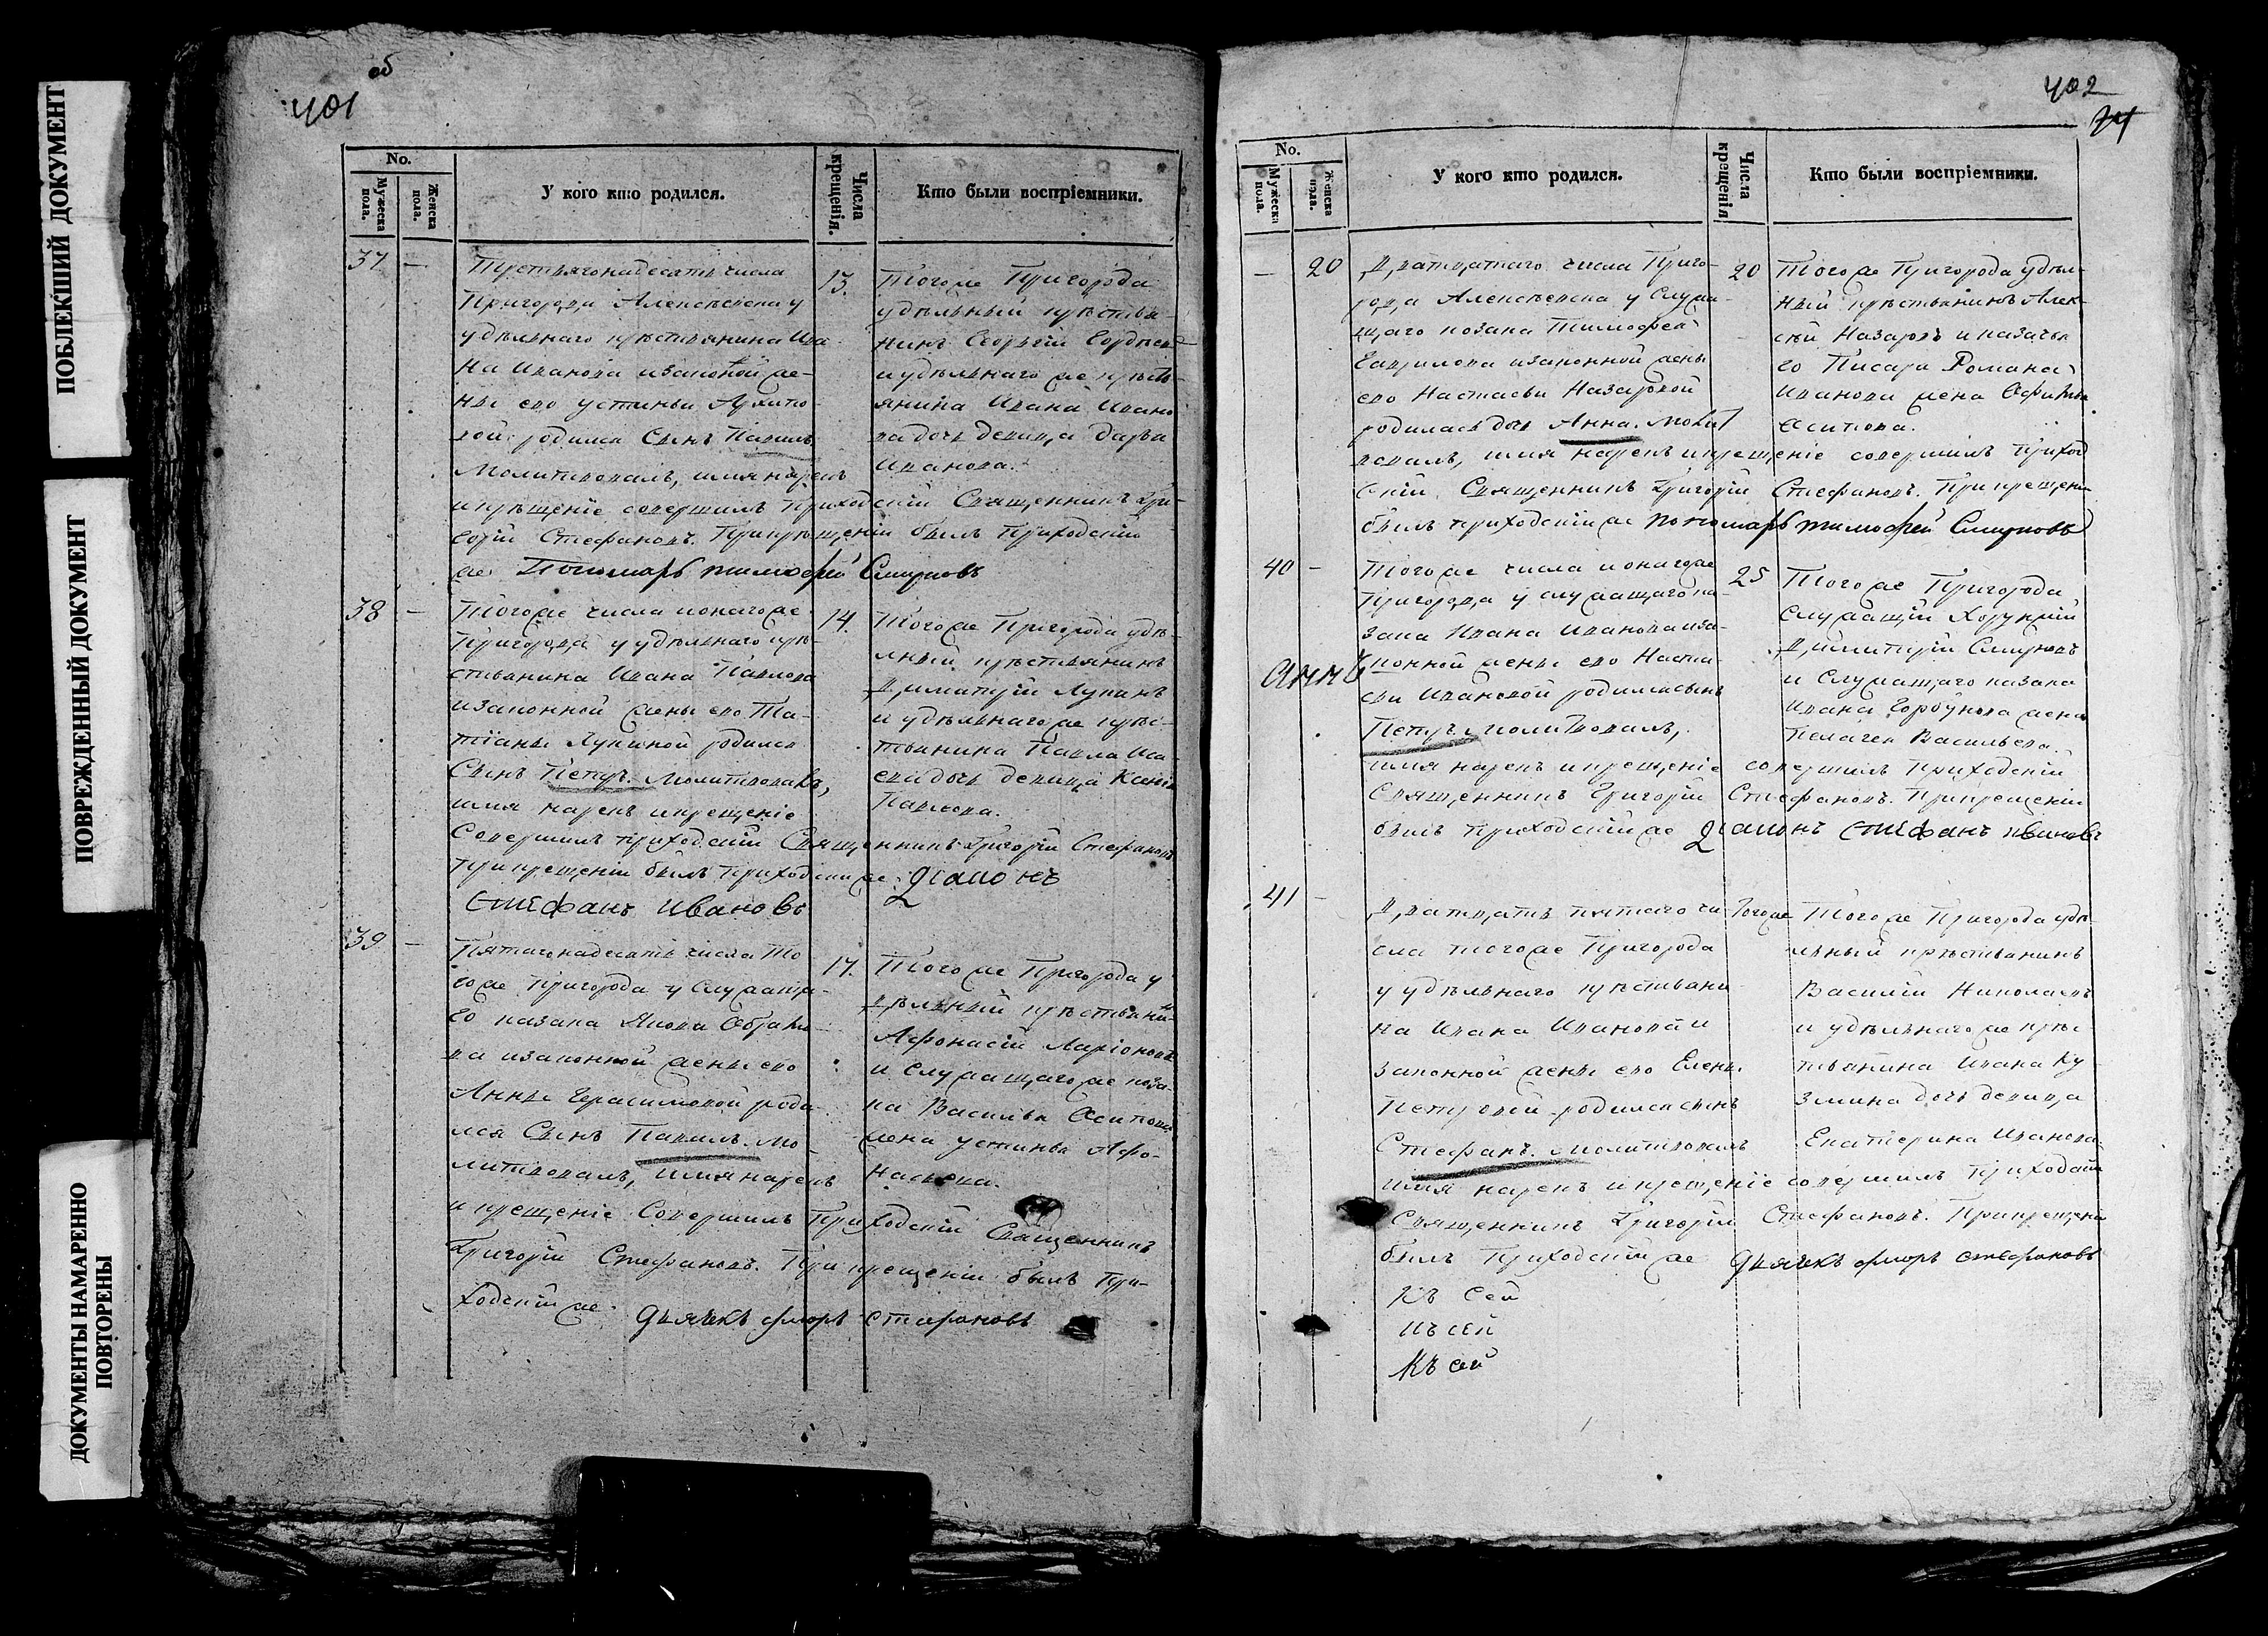 ПОБЛЕКШИЙ ДОКУМЕНТ
ПОВРЕЖДЕННЫЙ ДОКУМЕНТ
ДОКУМЕНТЫ НАМАРЕННО
ПОВТОРЕНЫ
об
401
No.
Мужеска пола.
Женска пола.
У кого кто родился.
Числа крещенія.
Кто были воспріемники.
37 —
числа
Пригорода Алексѣевска у
удѣльнаго крѣстьянина Ива-
на Иванова изаконной же-
ны его Устиньи
родился сынъ Павилъ
Молитвовалъ, имя нарекъ
и крѣщеніе совершилъ Приходскій Священникъ Гри-
горій Стефановъ. При крѣщеніи былъ Приходскій
же Пономарь тимофей Смирновъ
13.
Тогоже Пригорода
удѣльный крѣстья-
нинъ Георгій
и удѣльнаго же крѣсть-
янина Ивана Ивано
ва дочь девица Дарья
Иванова.
38 —
Тогоже числа ионагоже
Пригорода у удѣльнаго крѣ-
стьянина Ивана Павлова
изаконной жены его Та-
тіаны Лукиной родился
Сынъ Петръ. Молитвовалъ,
имя нарекъ икрещеніе
Совершилъ приходскій Священникъ Григорій Стефановъ
При крещеніи былъ Приходскій же діаконъ
Стефанъ Ивановъ
14.
Тогоже Пригорода удѣ-
льный крѣстьянинъ
Димитрій Лукинъ
и удѣльнаго же крѣс-
тьянина Павла Иса-
ева дочь девица Ксенья
Павлова.
39 —
Пятагонадесять числа То
гоже Пригорода у Служаща-
го казака Якова
ва изаконной жены его
Анны Герасимовой роди-
лся Сынъ Павилъ. Мо-
литвовалъ, имя нарекъ
и крещеніе Совершилъ Приходскій Священникъ
Григорій Стефановъ. При крещеніи былъ При-
ходскій же дьячекъ флоръ стефановъ
17.
Тогоже Пригорода у
дѣльный крѣстьяни-
Афонасій Ларіоновъ
и Служащаго же каза-
ка Василья Осипова
жена устинья Афо-
насьева.
402
74
No.
Мужеска пола.
Женска пола.
У кого кто родился.
Числа крещенія
Кто были воспріемники.
— 20
Дватцатаго числа Приго-
рода Алексѣевска у Служа-
щаго козака Тимофея
Гаврилова изаконной жены
его Настасьи Назаровой
родилась дочь Анна. Молит
вовалъ, имя нарекъ икрещеніе совершилъ Приход
скій Священникъ Григорій Стефановъ. При крещеніи
былъ приходскій же пономарь тимофей Смирновъ
20
Тогоже Пригорода удѣль-
ный крѣстьянинъ Алек-
сѣй Назаровъ и казачья
го Писаря Романа
Иванова жена
Осипова.
40 —
Тогоже числа ионагоже
Пригорода у служащаго ка-
зака Ивана Иванова иза-
конной жены его Наста-
сьи Ивановой родился сынъ
Петръ. молитвовалъ,
имя нарекъ икрещеніе совершилъ приходскій
Священникъ Григорій Стефановъ. При крещеніи
былъ Приходскій же діаконъ стефанъ ивановъ
25
Тогоже Пригорода
Служащій Хорунжій
Димитрій Смирновъ
и Служащаго казака
Ивана Горбунова жена
Пелагея Васильева.
41 —
Дватцать пятаго чи
сла тогоже Пригорода
у удѣльнаго крѣстьяни-
на Ивана Иванова и
законной жены его Елены
Петровой родился сынъ
Стефанъ. молитвовалъ
имя нарекъ и крещеніе совершилъ Приходскій
Священникъ Григорій Стефановъ. При крещеніи
былъ Приходскій же дьячекъ флоръ стефановъ
Тогоже
Тогоже Пригорода удѣ-
льный крѣстьянинъ
Василій Николаевъ
и удѣльнаго же крѣс-
тьянина Ивана Ку
змина дочь девица
Екатерина Иванова
Къ Сей
Къ сей
Къ сей